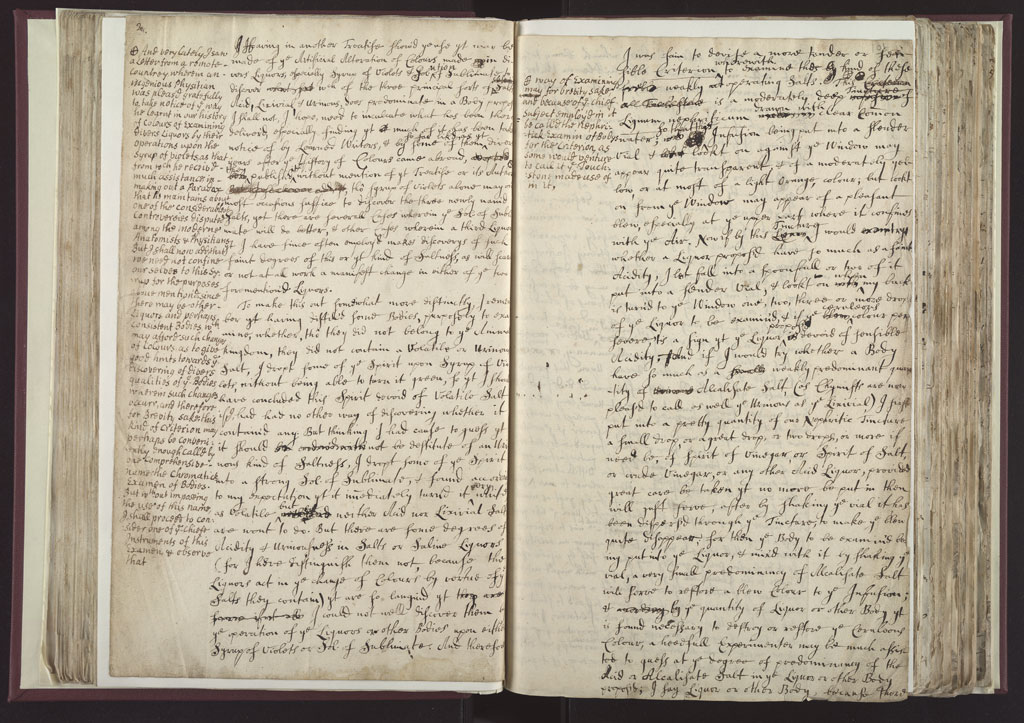 ⊕ And very lately I saw
a Letter from a remote
Countrey wherein an
ingenious Physitian
was pleas'd gratefully
to take notice of ye way
he learnt in our history
of Colours of Examining
divers Liquors by their
operations upon the
Syrup of violets as that
from wch he receiv'd
much assistance in
making out a Paradox
that he maintains about
one of the considerablest
Controversies disputed
among the moderne
Anatomists & Physitians
But I shall now add that
we need not confine
our selves to this Sy-
rup for the purposes
above mentioned since
there may be other
Liquors and perhaps
Consistent Bodies wch
may afford such changes
of Colours, as to give
good hints towards ye
discovering of divers
qualities of ye Bodies
wherein such Changes
occurr, and therefore
for Brevity sake this
kind of Criterion may
perhaps be conveni-
ently enough called by
one Comprehensive
name the Chromatick
Examen of Bodies.
But without imposing
the use of this name
I shall proceed to con-
sider one of ye Chiefs
Instruments of this
Examen & observe
that
Having in another Treatise shew'd ye use yt may be
made of ye Artificial Alteration of Colours made in di-
vers Liquors especially Syrup of Violets & Sol. of Sublimate
discover wch of the three principal sorts of
Acid, Lixivial & Urinous, does predominate in a Body propos'd
I shall not, I hope, need to inculcate what has been there
deliver'd, especially finding yt much of it has been taken
notice of by Learned Writers, & by some of them
years after ye History of Colours came abroad,
publish'd without mention of yt Treatise or its Author
the Syrup of Violets alone may on
most occasions suffice to discover the three newly nam'd
Salts, yet there are several Cases wherein ye Sol. of Subli-
mate will do better, & other Cases wherein a third Liquor
I have since often employ'd makes discoverys of such
faint degrees of this or yt kind of Saltness, as will scarce
or not at all work a manifest change in either of ye two
forementiond Liquors.
To make this out somewhat more distinctly, I remem-
ber yt having distill'd some Bodies, purposely to exa-
mine, whether, tho they did not belong to ye Animal
kingdom, they did not contain a Volatile or Urinous
Salt, I dropt some of ye Spirit upon Syrup of Vio-
lets, without being able to turn it green, so yt I should
have concluded this Spirit devoid of Volatile Salt
if I had had no other way of discovering whether it
contained any. But thinking I had cause to guess yt
it should not be destitute of an Uri-
nous kind of Saltness, I dropt some of ye Spirit
into a strong Sol. of Sublimate, & found according
to my expectation yt it immediately turn'd it white
as Volatile but neither Acid nor Lixivial Salts
are wont to do. But there are some degrees of
Acidity & Urinousness in Salts or Saline Liquors
(for I here distinguish them not, because the
Liquors act in ye change of Colours by vertue of ye
Salts they contain) yt are so languid yt
could not well discover them by
ye operation of ye Liquors or other Bodies upon either
Syrup of Violets or Sol. of Sublimate. And therefore
⊕ way of Examining
may for brevity sake
and because of ye chief
subject employed in it
be called the Nephri-
tick Examin of Bodys
for the Criterion, as
some would venture
to call it ye Touch-
stone, made use of
in it,
I was fain to devise a more tender or sen-
sible Criterion wherewith to Examine
weakly operating Salts.
is a moderately deep Tincture
Lignum nephriticum drawn with clear common
water; so that this Infusion being put into a slender
Vial & lookt on against ye Window may
appear quite transparent, & of a moderately yel-
low or at most of a light Orange, colour; but lookt
on from ye Window may appear of a pleasant
blew, especially at ye upper part where it confines
with ye Air. Now if by this Tincture I would
whether a Liquor propos'd have so much as a faint
Acidity, I let fall into a spoonfull or two of it
put into a slender Vial, & lookt on when my back
is turn'd to ye Window one, two, three or more drops
of ye Liquor to be examin'd; & if ye Ceruleous colour per-
severes tis a sign yt ye Liquor propos'd is devoid of sensible
Acidity; And if I would try whether a Body
have so much as a weakly predominant quan-
tity of Alcalisate Salt (as Chymists are now
pleas'd to call as well ye Urinous as ye Lixivial) I first
put into a pretty quantity of our Nephritic Tincture
a small drop, or a great drop, or two drops, or more if
need be, of Spirit of Vinegar or Spirit of Salt,
or crude Vinegar, or any other Acid Liquor, provided
great care be taken yt no more be put in then
will just serve, after by shaking ye vial it has
been dispers'd through ye Tincture, to make ye blew
quite disappear, for then ye Body to be examin'd be-
ing put into ye Liquor, & mix'd with it by shaking ye
vial, a very small predominancy of Alcalisate Salt
will serve to restore a blew Colour to ye Infusion;
& by ye quantity of Liquor or other Body yt
is found necessary to destroy or restore ye Ceruleous
Colour, a heedfull Experimenter may be much assis-
ted to guess at ye degree of predominancy of the
Acid or Alcalisate Salt in ye Liquor or other Body
propos'd; I say Liquor or other Body, because there